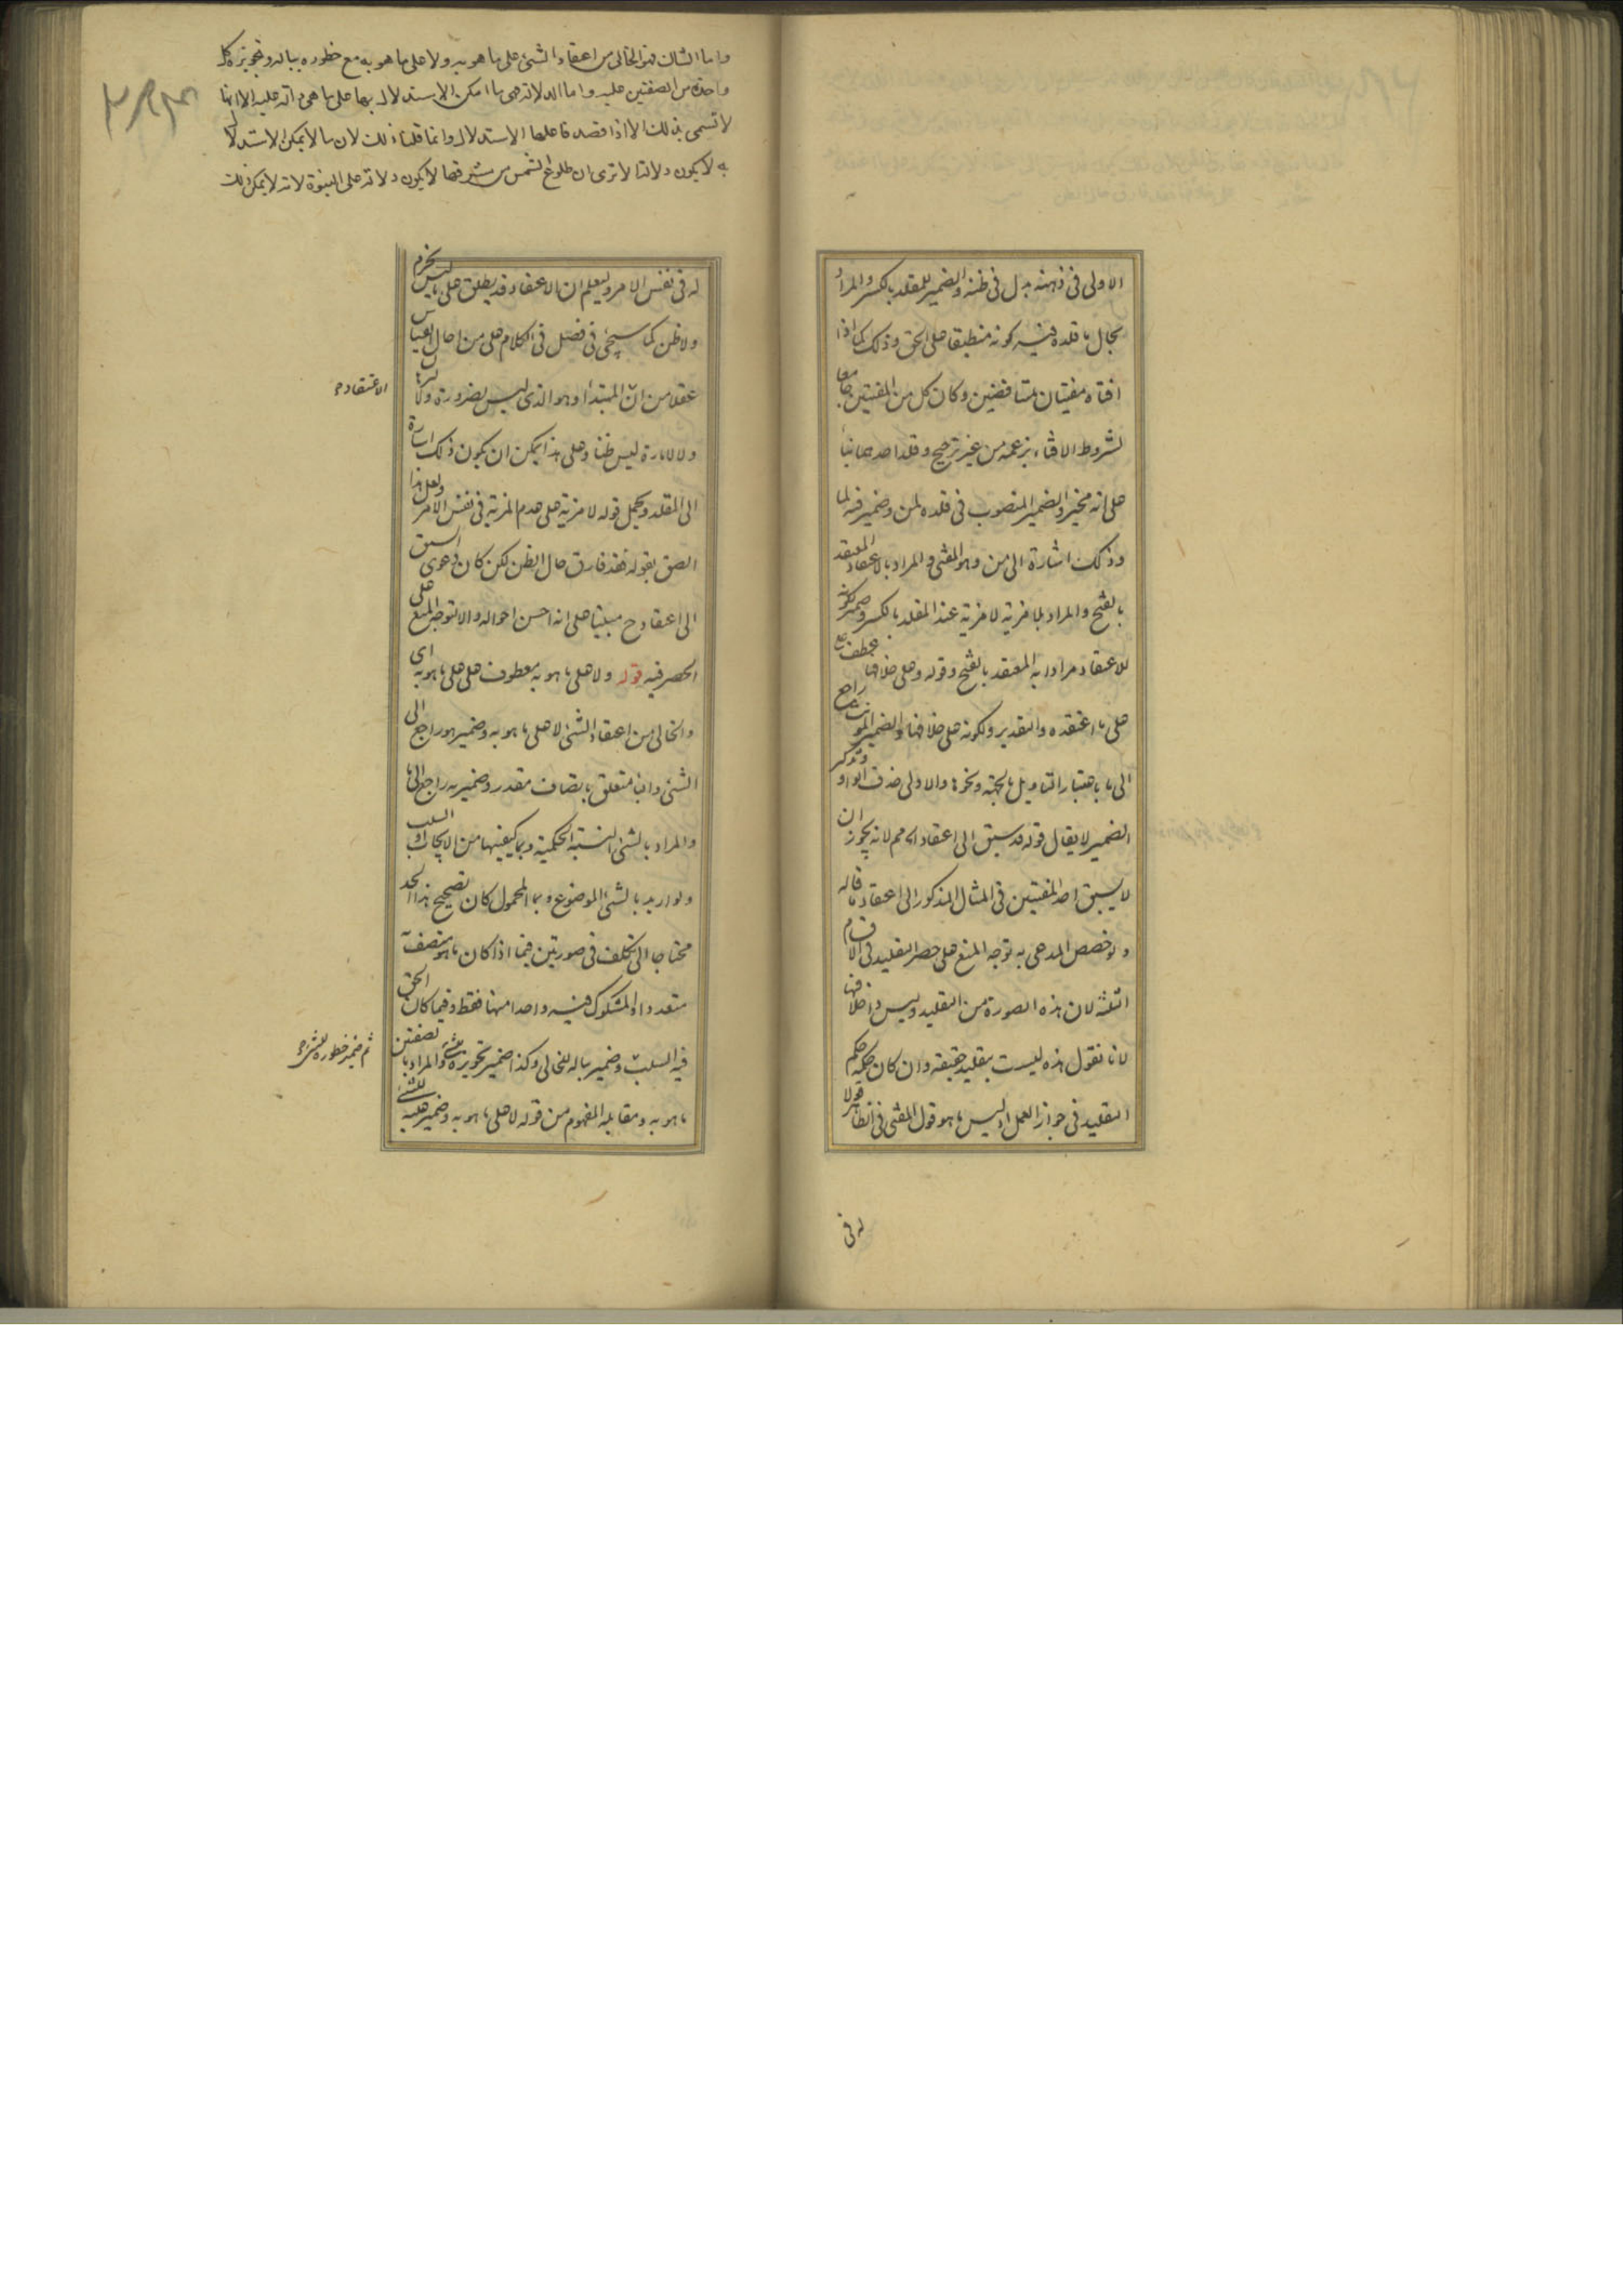 الاولى فى ذهنه بدل فى ظنه والضمير للمقلد بالكسر والمراد
بحال ما قلده فيه كونه منطبقا على الحق وذلك كما اذا
افتاه مفتيان بمتناقضين وكان كل من المفتيين جامعا
لشروط الافتاء بزعمه من غير ترجيح وقلد احدهما بناء
على انه مخير والضمير المنصوب فى قلده لمن وضمير فيه لما
وذلك اشارة الى من وهو المفتى والمراد بالاعتقاد المعتقد
بالفتح والمراد بلا مزية لا مزية عند المقلد بالكسر وضمير كونه
للاعتقاد مرادا به المعتقد بالفتح وقوله وعلى خلافها عطف
على ما اعتقده والتقدير ولكونه على خلافها والضمير المؤنث راجع
الى ما باعتبار التاويل بالجهة ونحوها والاولى حذف الواو وتذكير
الضمير لا يقال قوله قد سبق الى اعتقاده الخ مم لانه يجوز ان
لا يسبق احد المفتيين فى المثال المذكور الى اعتقاد ما قاله
ولو خصص المدعى به توجه المنع على حصر التقليد فى الاقسام
الثلثة لان هذه الصورة من التقليد وليس داخلا فيها
لانا نقول هذه ليست بتقليد حقيقة وان كان حكمه حكم
التقليد فى جواز العمل اذ ليس ما هو قول المفتى فى الظاهر قولا
له فى
واما الشاك فهو الخالى من اعتقاد الشئ على ما هو به ولا على ما هو به مع خطوره بباله وتجويزه كل
واحدة من الصفتين عليه واما الدلالة هى ما امكن الاستدلال بها على ما هى دالة عليه الا انها
لا تسمى بذلك الا اذا قصد فاعلها الاستدلال وانما قلنا ذلك لان ما لا يمكن الاستدلال
به لا يكون دلالة الا ترى ان طلوع الشمس من مشرقها لا يكون دلالة على النبوة لانه لا يمكن ذلك
له فى نفس الامر وليعلم ان الاعتقاد قد يطلق على ما ليس بجزم
ولا ظن كما سيجئ فى فصل فى الكلام على من احال القياس
عقلا من ان المبتدأ وهو الذى ليس بضرورة ولا
الاعتقاد
ولا لامارة ليس ظنا وعلى هذا يمكن ان يكون ذلك اشارة
الى المقلد ويحمل قوله لا مزية على عدم المزية فى نفس الامر ولعل هذا
الصق بقوله فقد فارق حال الظن لكن كان دعوى السبق
الى اعتقاده ح مبنيا على انه احسن احواله والا لتوجه المنع على
الحصر فيه قوله ولا على ما هو به معطوف على على ما هو به اى
والخالى من اعتقاد الشئ لا على ما هو به وضمير هو راجع الى
الشئ والباء متعلق بمضاف مقدر وضمير به راجع الى ما
والمراد بالشئ النسبة الحكمية وبما كيفيتها من الايجاب او السلب
ولو اريد بالشئ الموضوع وبما المحمول كان تصحيح هذا الحد
محتاجا الى تكلف فى صورتين فيما اذا كان ما هو متصف به
متعددا والمشكوك فيه واحدا منها فقط وفيما كان الحق
فيه السلب وضمير باله للخالى وكذا ضمير تجويزه والمراد بالصفتين
ثم ضمير خطوره للشئ
ما هو به ومقابله المفهوم من قوله لا على ما هو به وضمير عليه للشئ